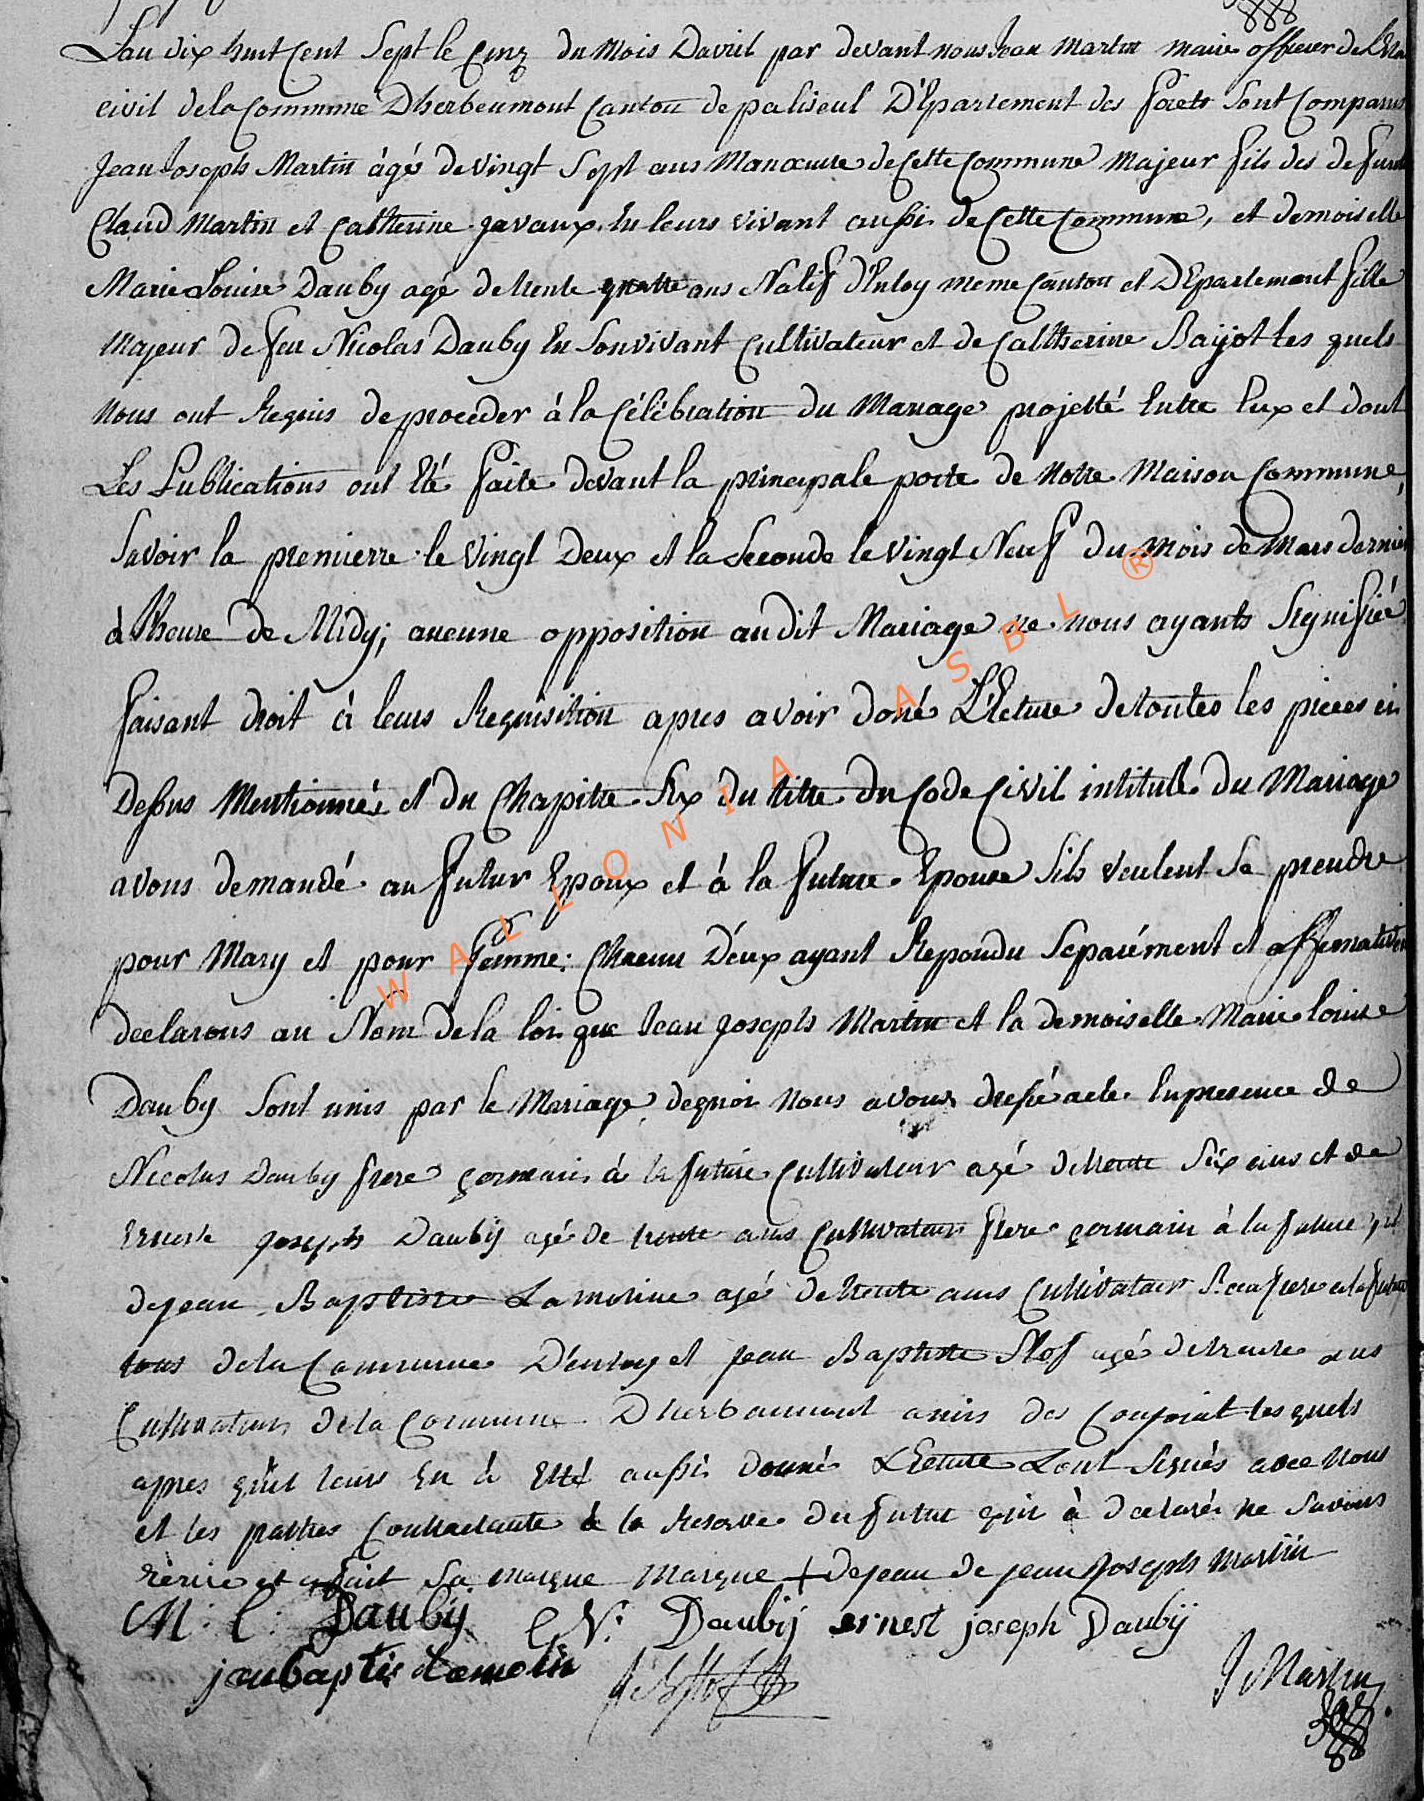 Lan dix huit Cent Sept le Cinq du Mois Davril par devant nous Jean Martin maire officier de L'Etat
civil de la Commune Dherbeumont Canton de paliseul D'Epartement des forets Sont Comparus
Jean Joseph Martin âgé de vingt Sept ans Manœuvre de Cette Commune Majeur fils des defunts
Claud Martin et Catherine javaux En leurs vivant aussi de Cette Commune, et demoiselle
Marie Louise Dauby agé de trente quatre ans Natif d'Entoy meme Canton et DEpartement fille
Majeur de feu Nicolas Dauby En Son vivant Cultivateur et de Catherine Bayot les quels
Nous ont Requis de proceder à la Célébration du Mariage projetté Entre Eux et dont
Les Publications ont Eté faite devant la principale porte de Notre Maison Commune,
Savoir la premierre le Vingt Deux et la Seconde le vingt Neuf du Mois de Mars dernier
à l'heure de Midy; aucune opposition audit Mariage ne nous ayants Signifiée
faisant droit à leurs Requisition apres avoir doné L'Ecture de toutes les pieces ci
Dessus Mentionnés et du Chapitre Six du titre du Code Civil intitulé du Mariage
avons demandé au futur Epoux et à la future Epouse Sils veulent Se prendre
pour Mary et pour femme: Chacun D'eux ayant Repondu Separément et affirmativem
declarons au Nom de la loi que Jean Joseph Martin et la demoiselle Marie louise
Dauby Sont unis par le Mariage, dequoi nous avons dressé acte En presence de
Nicolas Dauby frere germain à la future Cultivateur agé de trente Six ans et de
Erneste joseph Dauby agé de trente ans Cultivateur frere germain à la future, et
de jean Baptiste Lamoline agé de trente ans Cultivateur Beaufrere a la future
tous de la Commune D'entoy et jean Baptiste Stof agé de trente ans
Cultivateur de la Commune Dherbeumont amis des Conjoint les quels
apres qu'il leurs En à Etté aussi donné LEcture Lont Signés avec Nous
et les parties Contractante à la Reserve du futur qui à declaré ne Savoir
Ecrire et a fait Sa marque Marque + de jean de jean Joseph Martin
M: L: Dauby C N: Daubij ernest joseph Daubÿ
jan baptis Lamolin
J Martin
WALLONIA ASBL ®